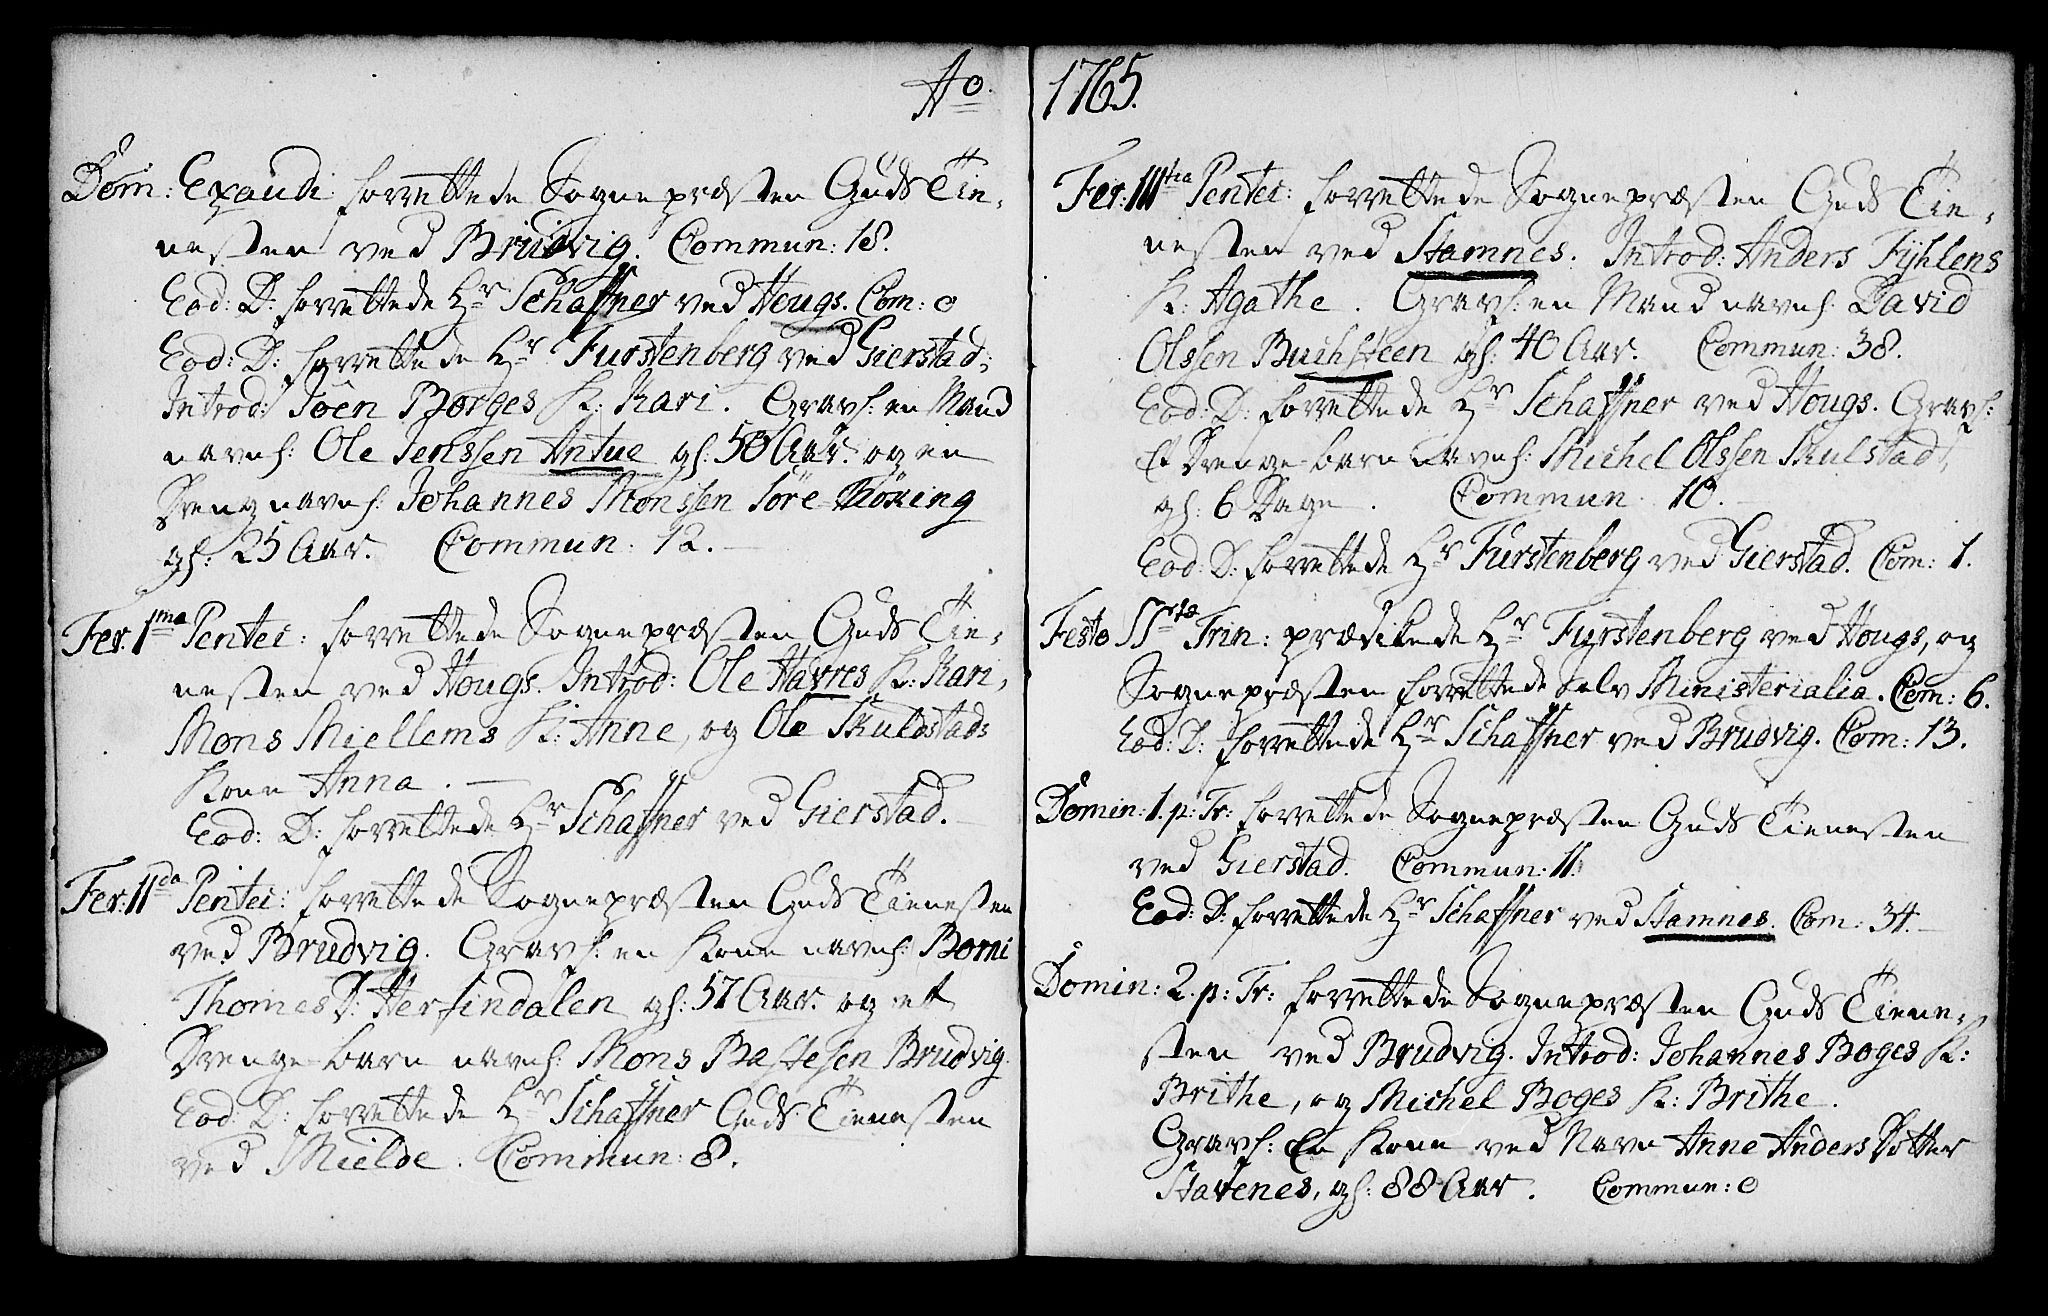 Ao. 1765.
Dom: Exaudi forrettede Sognepræsten Guds Tie-
nesten ved Brudvig. Commun: 18.
Eod: D: forrettede Hr Schaffner ved Hougs. Com: 0
Eod: D: forrettede Hr Furstenberg ved Gierstad:
Introd: Joen Borges K: Kari. Gravf: en Mand
navnl: Ole Jenssen Antue gl: 50 Aar. og en
Dreng navnl: Johannes Monssen
gl: 25 Aar. Commun: 12.
Fer: 1ma Pentec: forrettede Sognepræsten Guds Tie-
nesten ved Hougs. Introd: Ole Havres K: Kari,
Mons Miellems K: Anne, og Ole Skulestads
Kone Anna.
Eod: D: forrettede Hr Schaffner ved Gierstad.
Fer: IIda Pentec: forrettede Sognepræsten Guds Tienesten
ved Brudvig. Gravf: en Kone navnl: Borni
Thomes D: Herfindalen gl: 57 Aar. og et
Drenge-barn navnl: Mons Bastesen Brudvig.
Eod: D: forrettede Hr Schaffner Guds Tienesten
ved Mielde. Commun: 8.
Fer: IIItia Pentec: forrettede Sognepræsten Guds Tie-
nesten ved Stamnes. Introd: Anders Fyhlens
K: Agathe. Gravf: en Mand navnl: David
Olssen Buchsteen gl: 40 Aar. Commun: 38.
Eod: D: forrettede Hr Schaffner ved Hougs. Gravf:
Et Drenge-barn navnl: Michel Olssen Skulstad,
gl: 6 Dage. Commun. 10.
Eod: D: forrettede Hr Furstenberg ved Gierstad. Com: 1.
Festo SSctæ Trin: prædikede Hr Furstenberg ved Hougs, og
Sognepræsten forrettede selv Ministerialia. Com: 6.
Eod: D: forrettede Hr Schaffner ved Brudvig. Com: 13.
Domin: 1. p: Tr: forrettede Sognepræsten Guds Tienesten
ved Gierstad. Commun: 11.
Eod: D: forrettede Hr Schaffner ved Stamnes. Com: 34.
Domin: 2. p: Tr: forrettede Sognepræsten Guds Tiene-
sten ved Brudvig. Introd: Johannes Boges K:
Brithe, og Michel Boges K: Brithe.
Gravf: En Kone ved Navn Anne Anders Dotter
Stavenes, gl: 88 Aar. Commun: 0